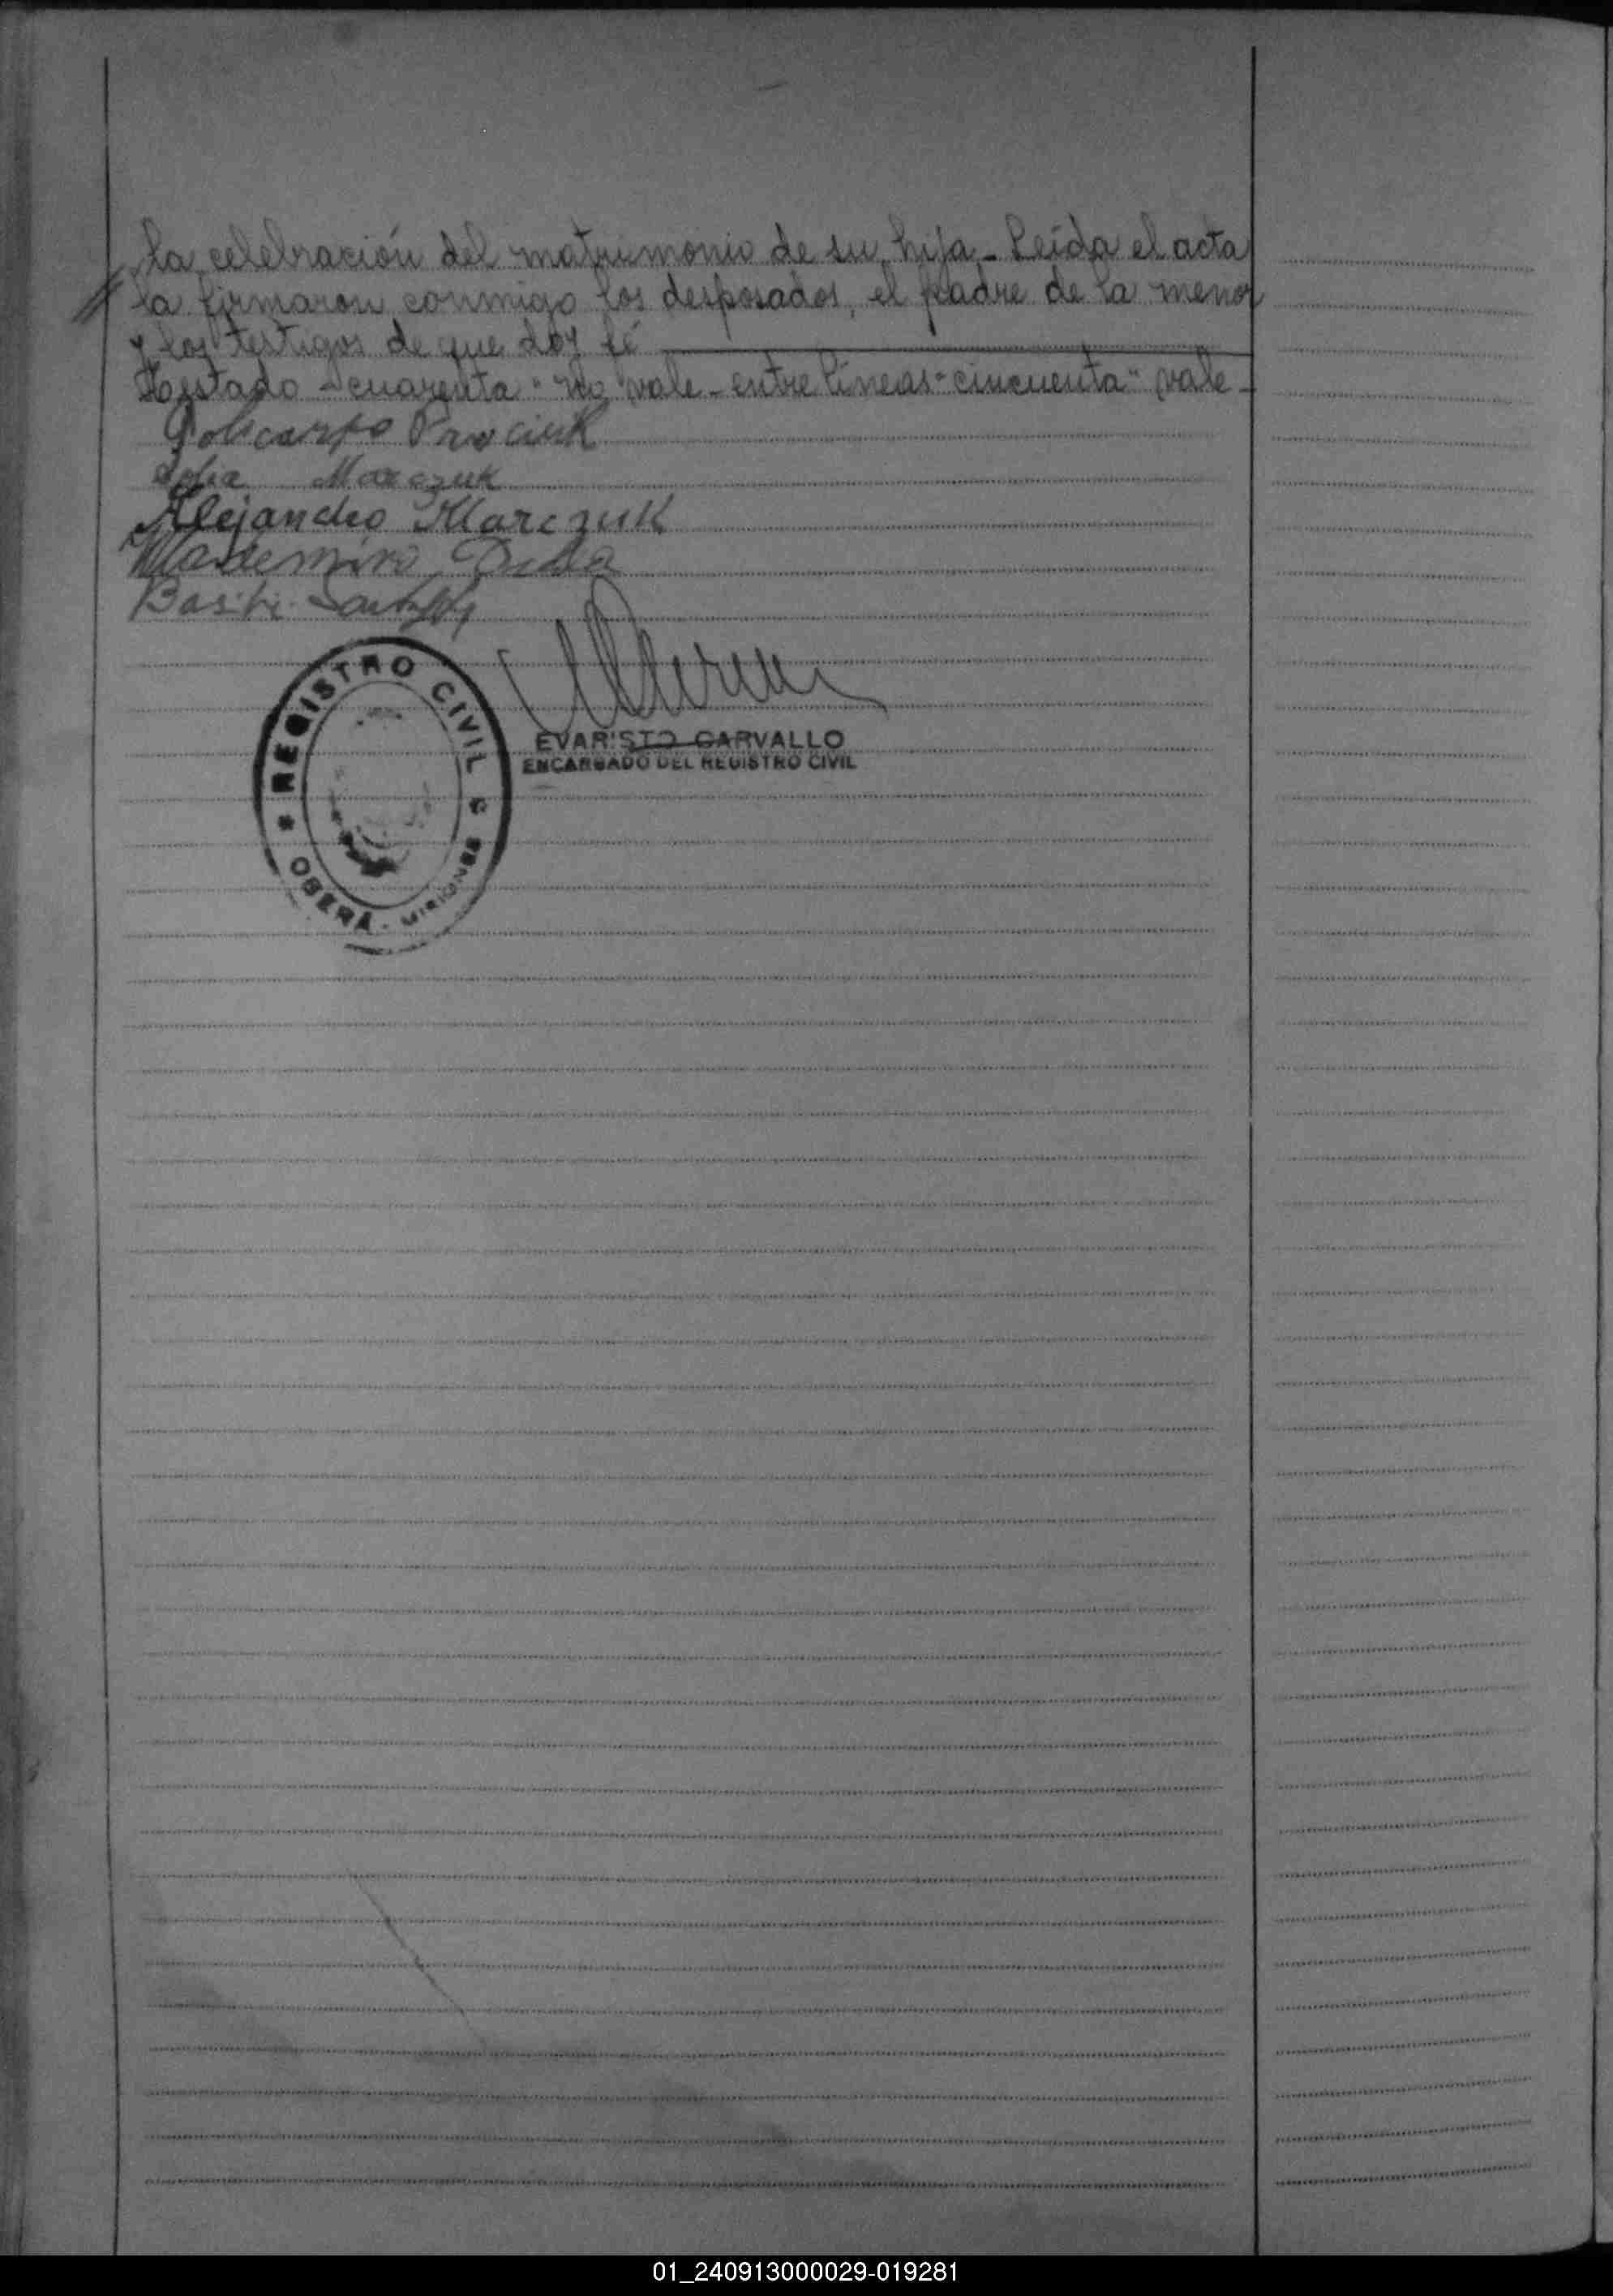 la celebración del matrimonio de su hija - Leída el acta
la firmaron conmigo los desposados, el padre de la menor
y los testigos de que doy fé
Testado - cuarenta" no vale - entre líneas - cincuenta" vale -
Policarpo Prociuk
Sofia Marczuk
Alejandro Marczuk
REGISTRO CIVIL
OBERÁ - MISIONES
EVARISTO CARVALLO
ENCARGADO DEL REGISTRO CIVIL
01_240913000029-019281